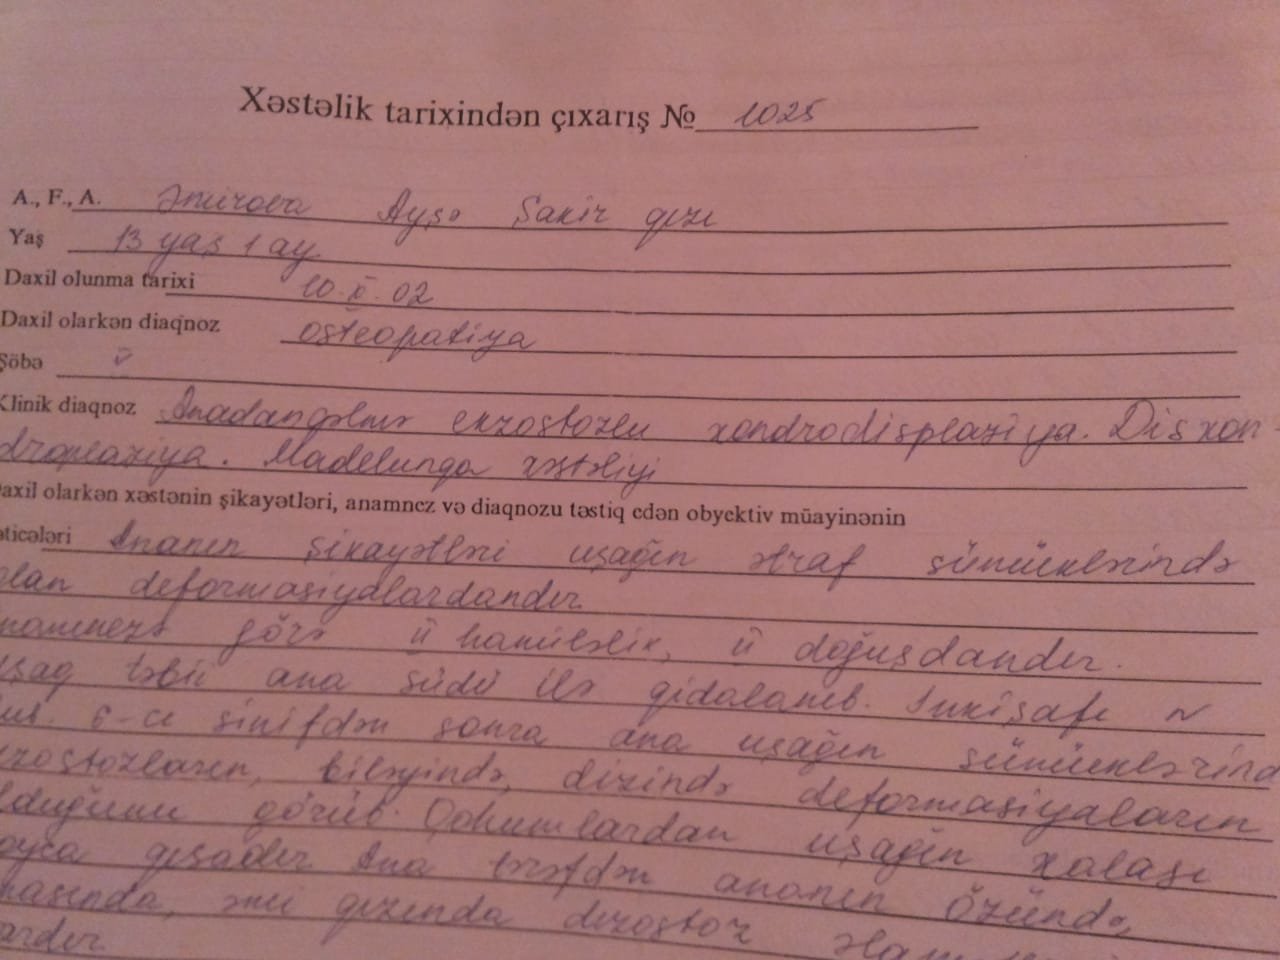 Xəstəlik tarixindən çıxarış № 1025
A., F., A. Əmirova Ayşə Şakir qızı
Yaş 13 yaş 1 ay
Daxil olunma tarixi 10.X.02
Daxil olarkən diaqnoz osteopatiya
Şöbə V
Klinik diaqnoz Anadangəlmə ekzostozlu xondrodisplaziya. Disxon-
droplaziya. Madelunqa xəstəliyi
Daxil olarkən xəstənin şikayətləri, anamnez və diaqnozu təstiq edən obyektiv müayinənin
nəticələri Ananın şikayətləri uşağın ətraf sümüklərində
olan deformasiyalardandır
Anamnezə görə II hamiləlik, II doğuşdandır.
Uşaq təbii ana südü ilə qidalanıb. İnkişafı N
6-cı sinifdən sonra ana uşağın sümüklərində
ekzostozların, biləyində, dizində deformasiyaların
olduğunu görüb. Qohumlardan uşağın xalası
boyca qısadır. Ana tərəfdən ananın özündə,
əmi qızında